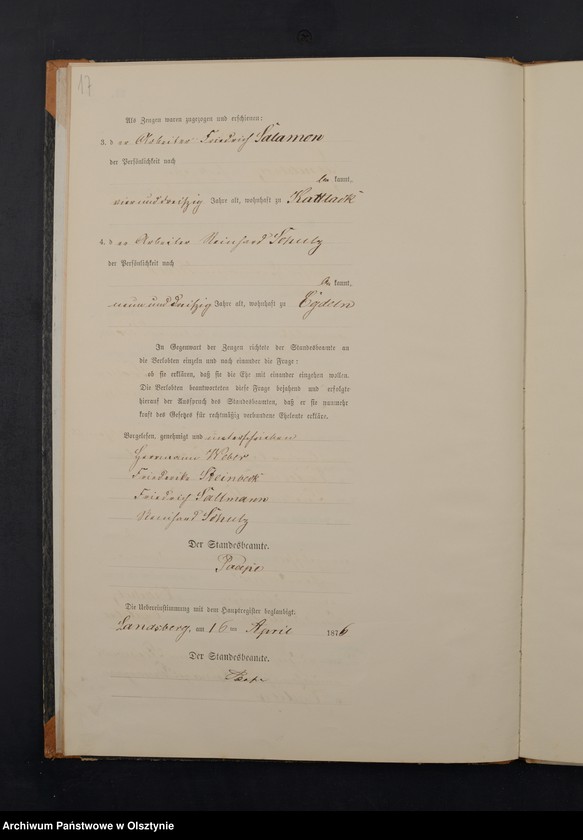 17
Als Zeugen waren zugezogen und erschienen:
3. d er Arbeiter Friedrich Salamon
der Persönlichkeit nach
be kannt,
vier und dreißig Jahre alt, wohnhaft zu Kattlack
4. d er Arbeiter Reinhard Schulz
der Persönlichkeit nach
be kannt,
neun und dreißig Jahre alt, wohnhaft zu
In Gegenwart der Zeugen richtete der Standesbeamte an
die Verlobten einzeln und nach einander die Frage:
ob sie erklären, daß sie die Ehe mit einander eingehen wollen.
Die Verlobten beantworteten diese Frage bejahend und erfolgte
hierauf der Ausspruch des Standesbeamten, daß er sie nunmehr
kraft des Gesetzes für rechtmäßig verbundene Eheleute erkläre.
Vorgelesen, genehmigt und unterschrieben
Herrmann Weber
Friederike Steinbeck
Friedrich Sallmann
Reinhard Schulz
Der Standesbeamte.
Die Uebereinstimmung mit dem Hauptregister beglaubigt.
Landsberg, am 16 ten April 1876
Der Standesbeamte.
Archiwum Państwowe w Olsztynie